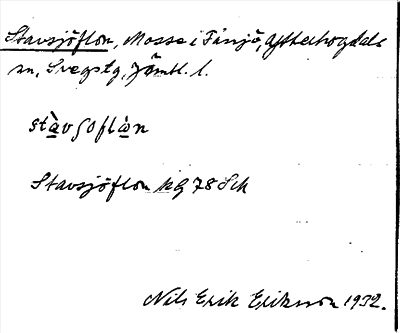 Stavsjöflon, Mosse i Fånsjö, Ytterhogdals
sn, Svegs tg, Jämtl. l.
stàvʃoflàn
Stavsjöflon kG 78 Sch
Nils Erik Eriksson 1932.